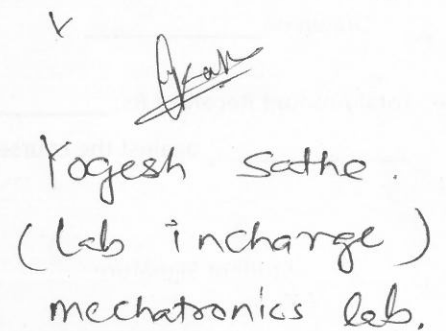 Yogesh Sathe.
(Lab incharge)
mechatronics lab.